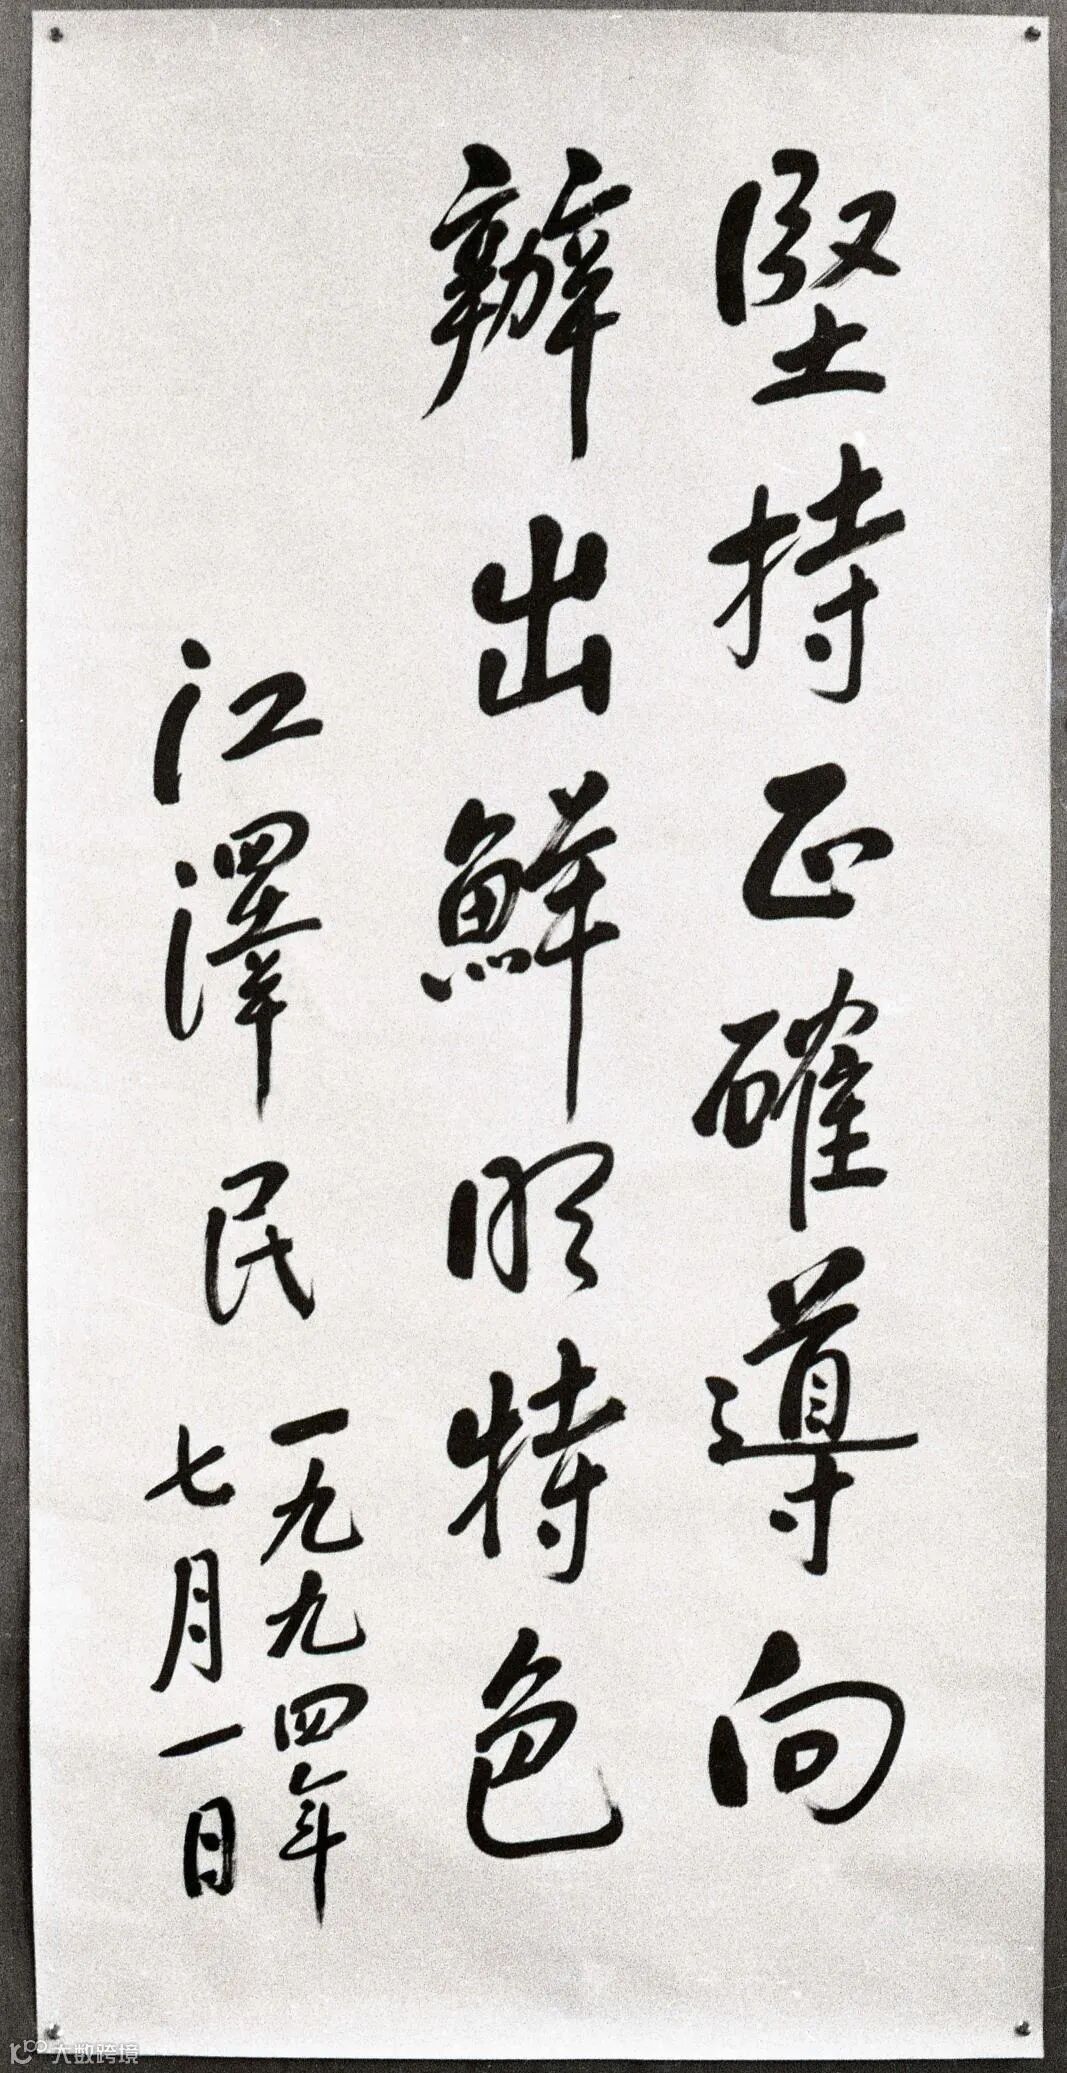 堅持正確導向
辦出鮮明特色
江澤民
一九九四年
七月一日
大数跨境